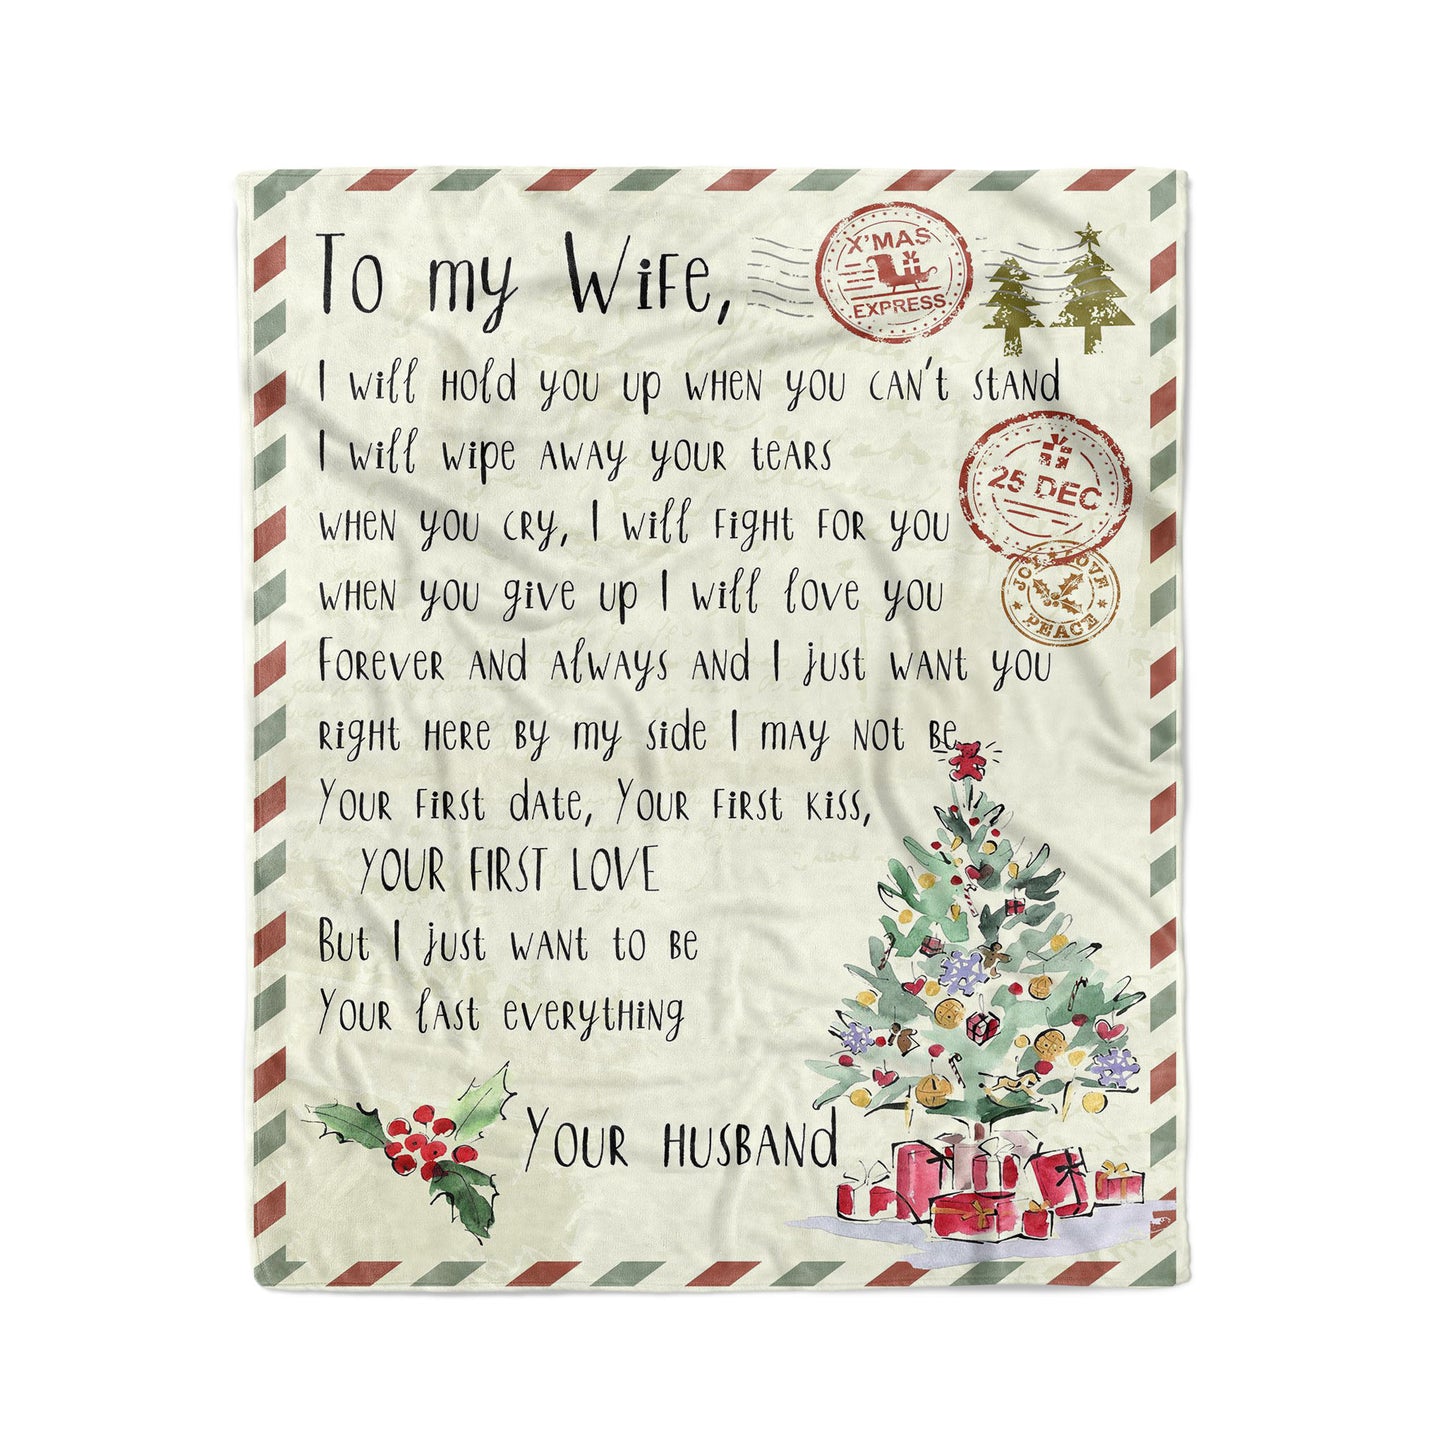 To my Wife,
X'MAS
EXPRESS
I will hold you up when you can't stand
I will wipe away your tears
25 DEC
when you cry, I will fight for you
when you give up I will love you
JOY LOVE
PEACE
Forever and always and I just want you
right here by my side I may not be
Your first date, Your first kiss,
YOUR FIRST LOVE
But I just want to be
Your last everything
Your husband